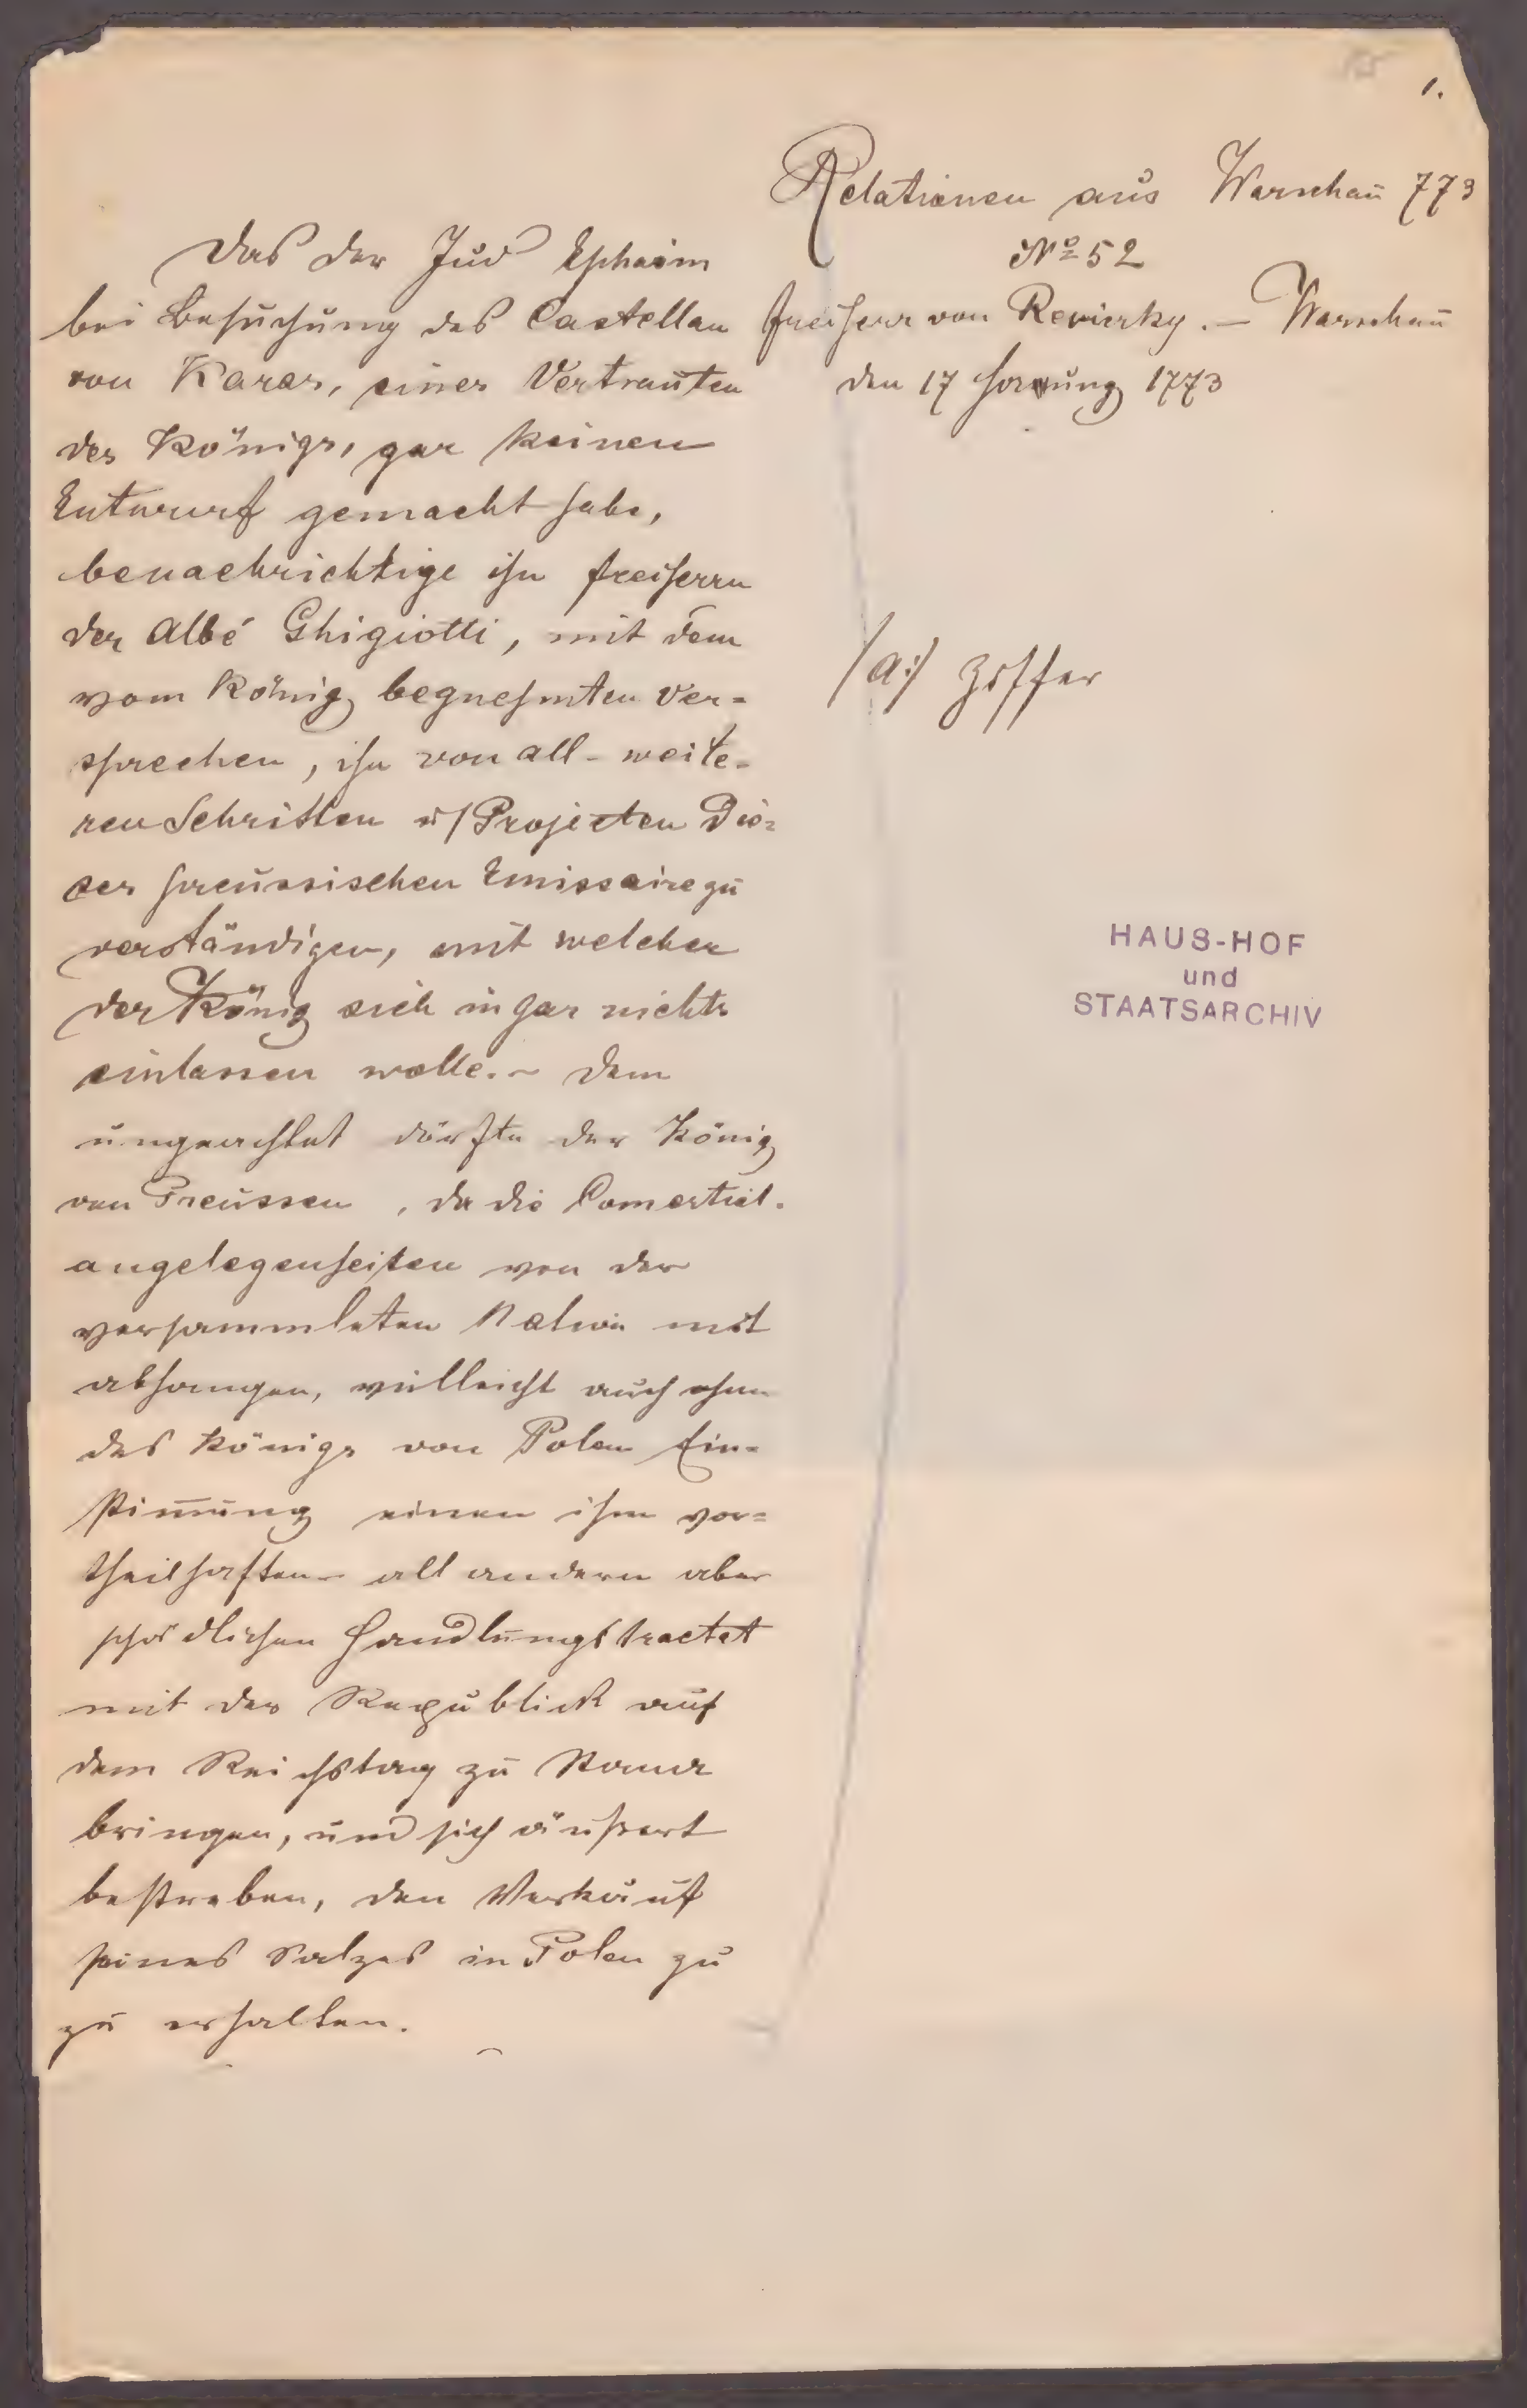 1.
Relationen aus Warschau 773
No 52
Freiherr von Reviczky. — Warschau
den 17 Hornung 1773
/a:/ Ziffer
HAUS-HOF
und
STAATSARCHIV
Das der Jud Ephraim
bei Besuchung des Castellan
von Karas, eines Vertrauten
des Königs, gar keinen
Entwurf gemacht habe,
benachrichtige ihn Freiherrn
der Abbé Ghigiotti, mit dem
vom König begnehmten Ver=
sprechen, ihn von all- weite=
ren Schritten u/ Projecten Die=
ser preussischen Emissaire zu
verständigen, mit welchen
der König sich in gar nichts
einlassen wolle. ~ Dem
ungeachtet dörfte der König
von Preussen, da die Comertial.
angelegenheiten von der
versammleten Nation mit
abhangen, villeicht auch ohne
des Königs von Polen Ein=
stimung einen ihm vor=
theilhaften- all andern aber
schädlichen Handlungstractat
mit der Republick auf
dem Reichstag zu Stande
bringen, und sich äußerst
bestreben, den Verkauf
seines Salzes in Polen zu
zu erhalten.